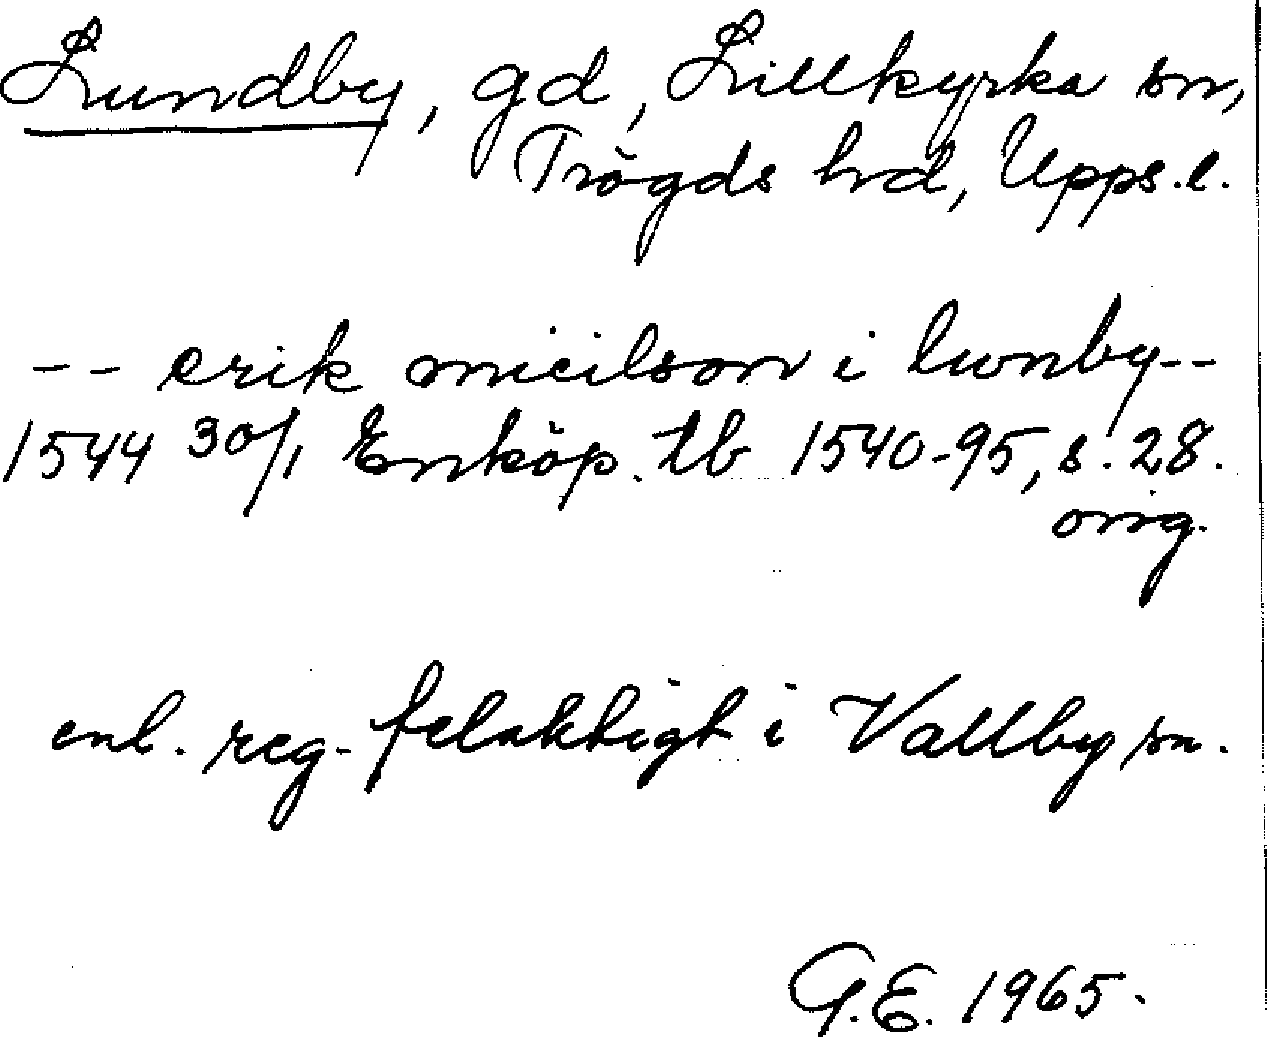 Lundby, gd, Lillkyrka sn,
Trögds hd, Upps. l.
-- erik mieilson i lwnby --
1544 30/1 Enköp. tb 1540-95, s. 28.
orig.
enl. reg. felaktigt i Vallby sn.
G.E. 1965.